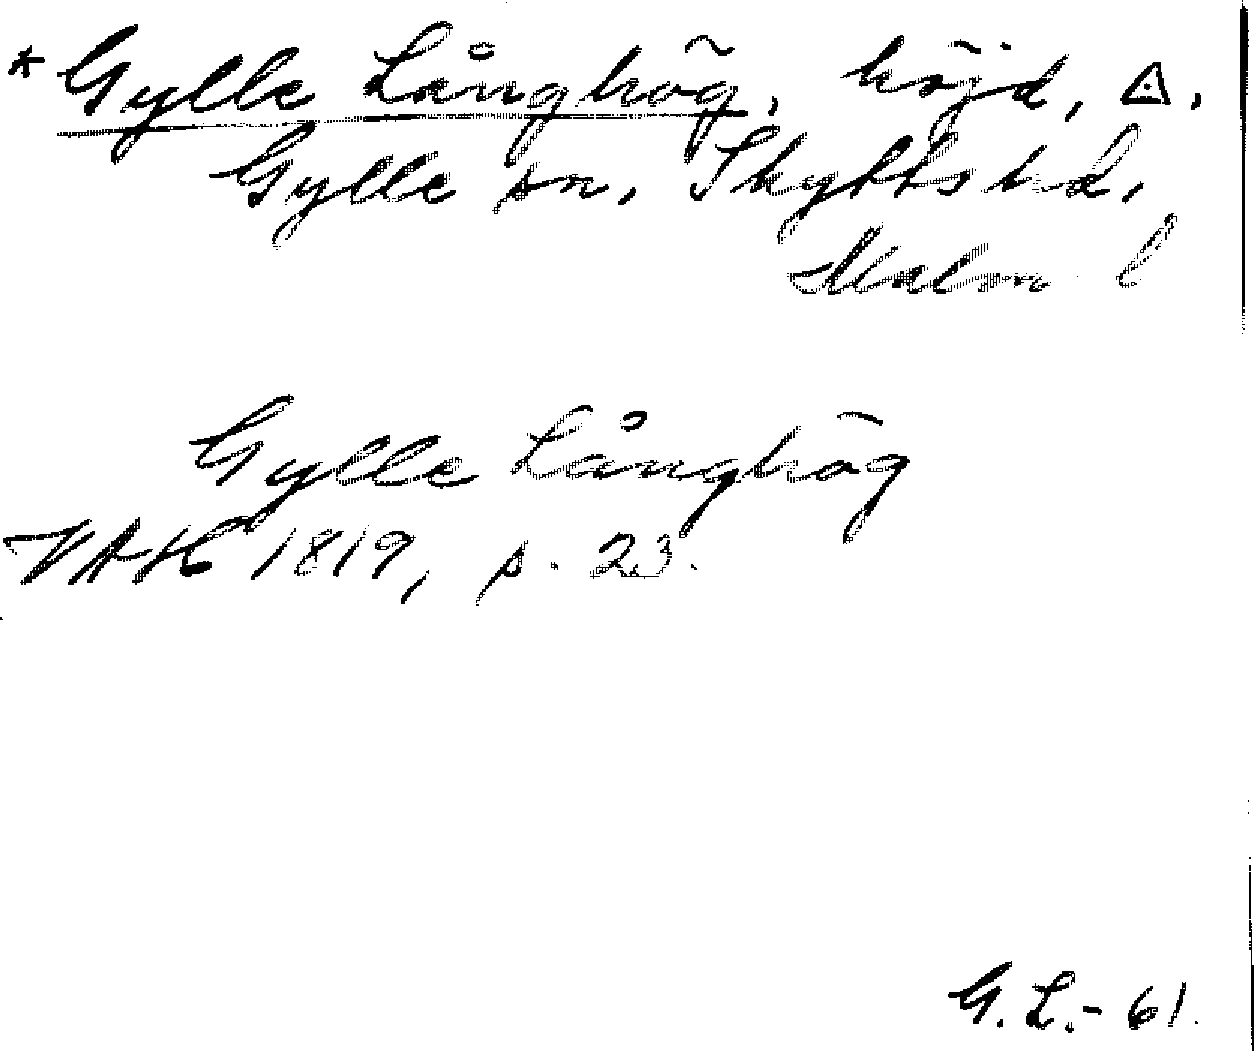 * Gylle Långhög, höjd, ⚠,
Gylle sn, Skytts hd,
Malm l
Gylle Långhög
VAH 1819, p. 23.
G. L. - 61.